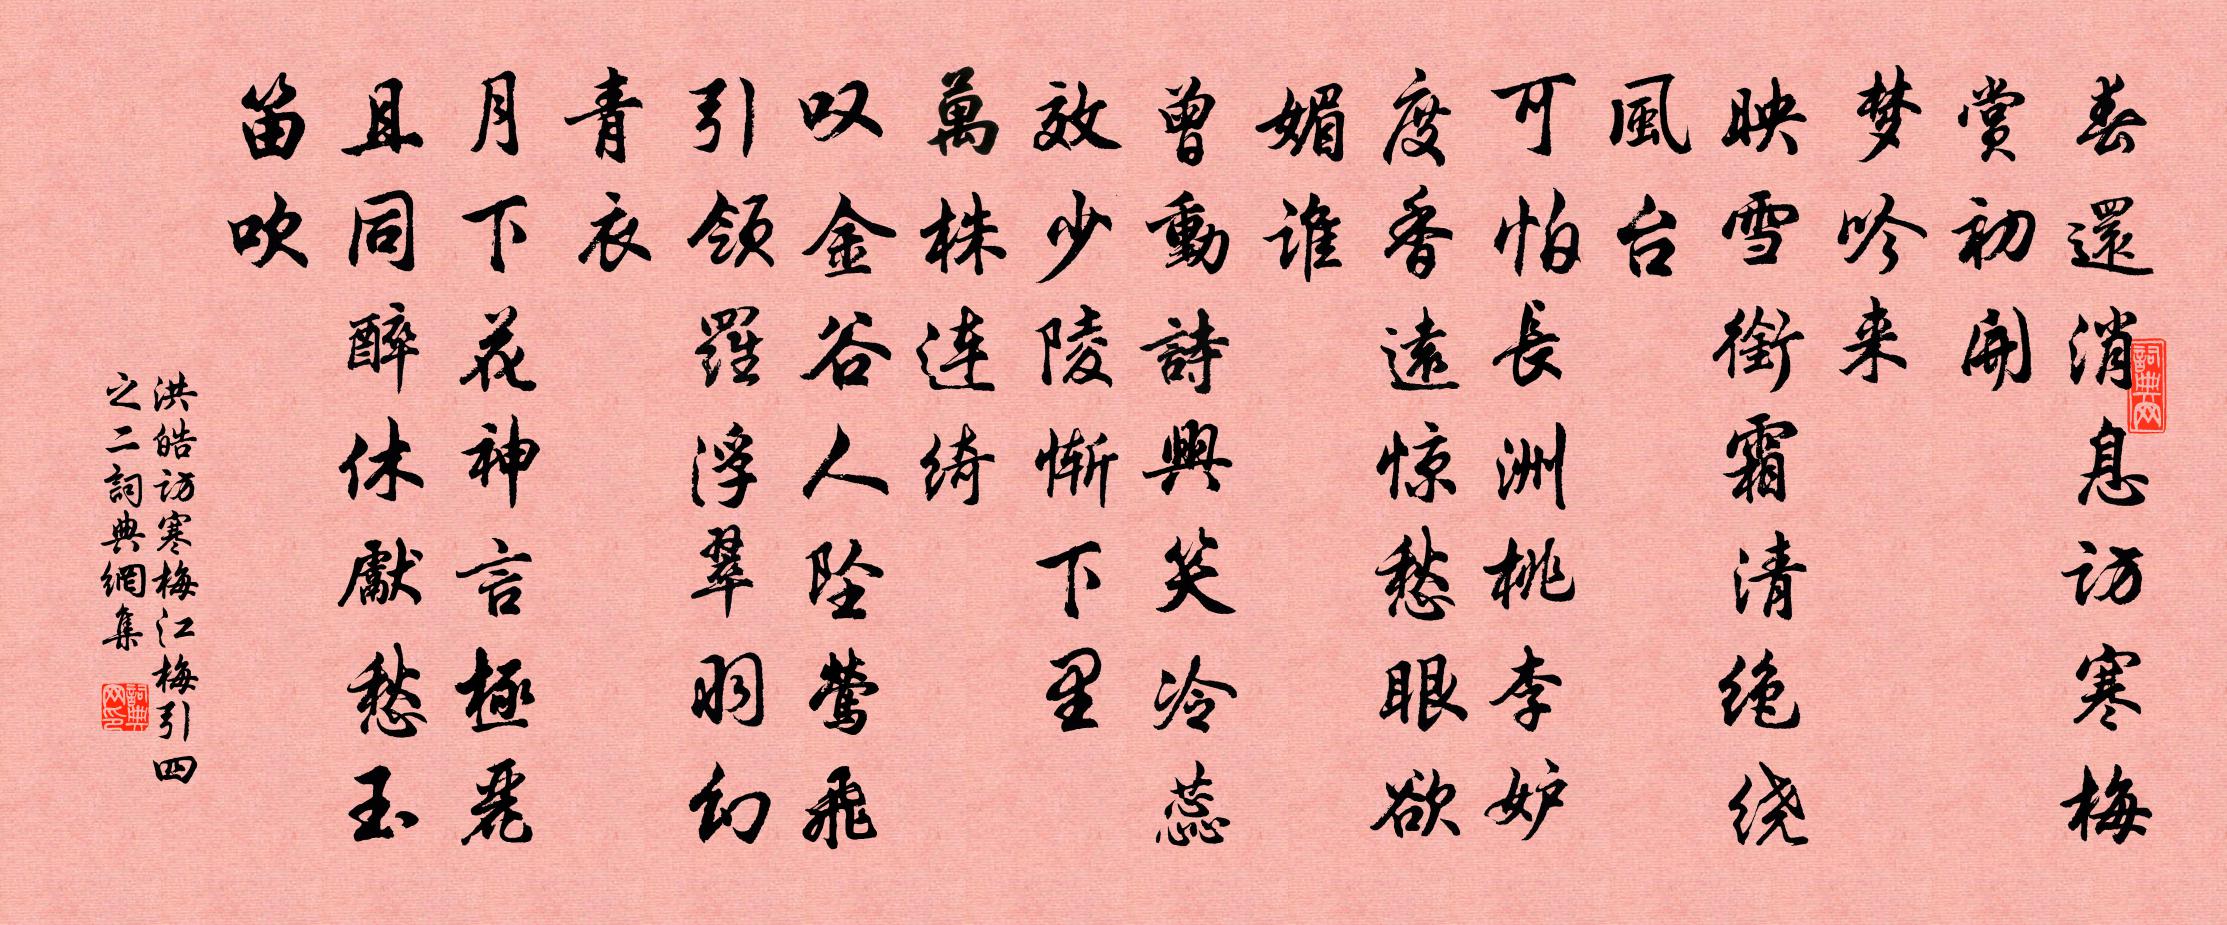 春還消息访寒梅
赏初開
梦吟来
映雪銜霜清绝绕
風台
可怕長洲桃李妒
度香遠惊愁眼欲
媚谁
曾動詩興笑冷蕊
效少陵惭下里
萬株连绮
叹金谷人坠莺飛
引领羅浮翠羽幻
青衣
月下花神言極麗
且同醉休獻愁玉
笛吹
洪皓访寒梅江梅引四
之二詞典網集
詞典网
詞典网印